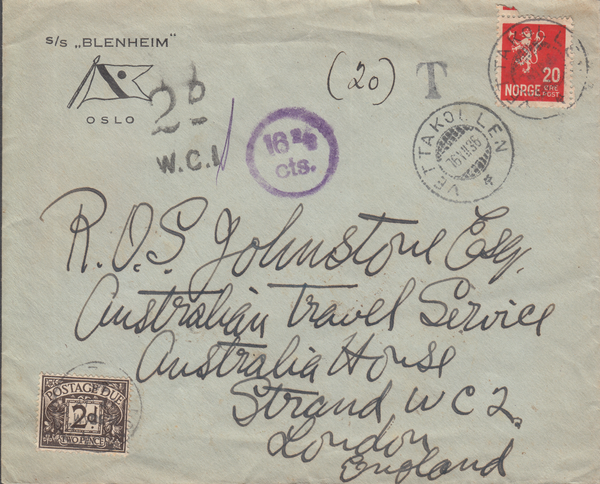 s/s „BLENHEIM"
OSLO
2D
W.C.1
16 2/3
cts.
(20)
T
20
NORGE ØRE
POST
VETTAKOLLEN
16 VII 36
R.O.S. Johnstone Esq.
Australian Travel Service
Australia House
Strand WC2.
London
England
POSTAGE DUE
2d
TWO PENCE